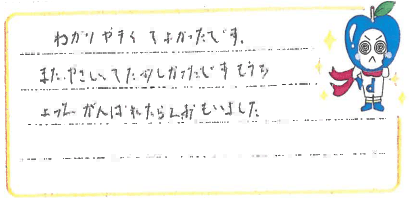 わかりやすくてよかったです。
またやさしくてたのしかったですもうち
ょっとがんばれたらとおもいました
d